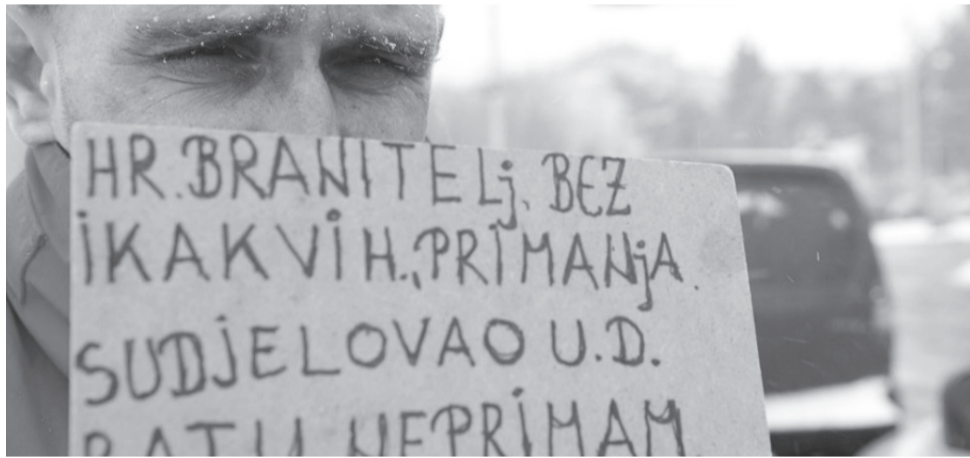 HR. BRANITELj. BEZ
iKAKViH., PRiMANjA.
SUDjELOVAO U.D.
RATU NEPRiMAM